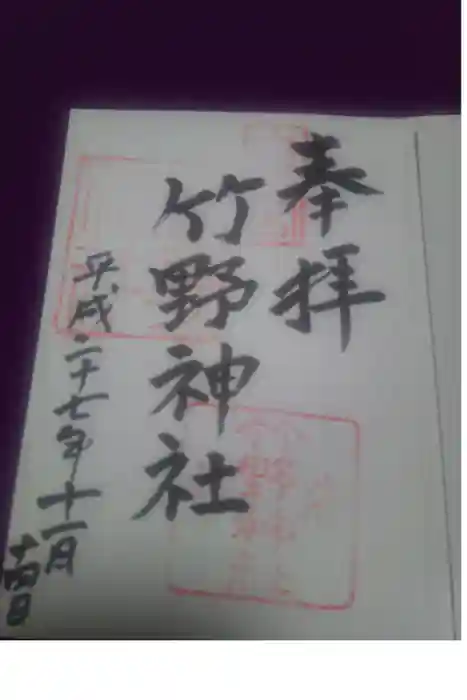 奉拝
竹野神社
平成二十七年十一月
十四日